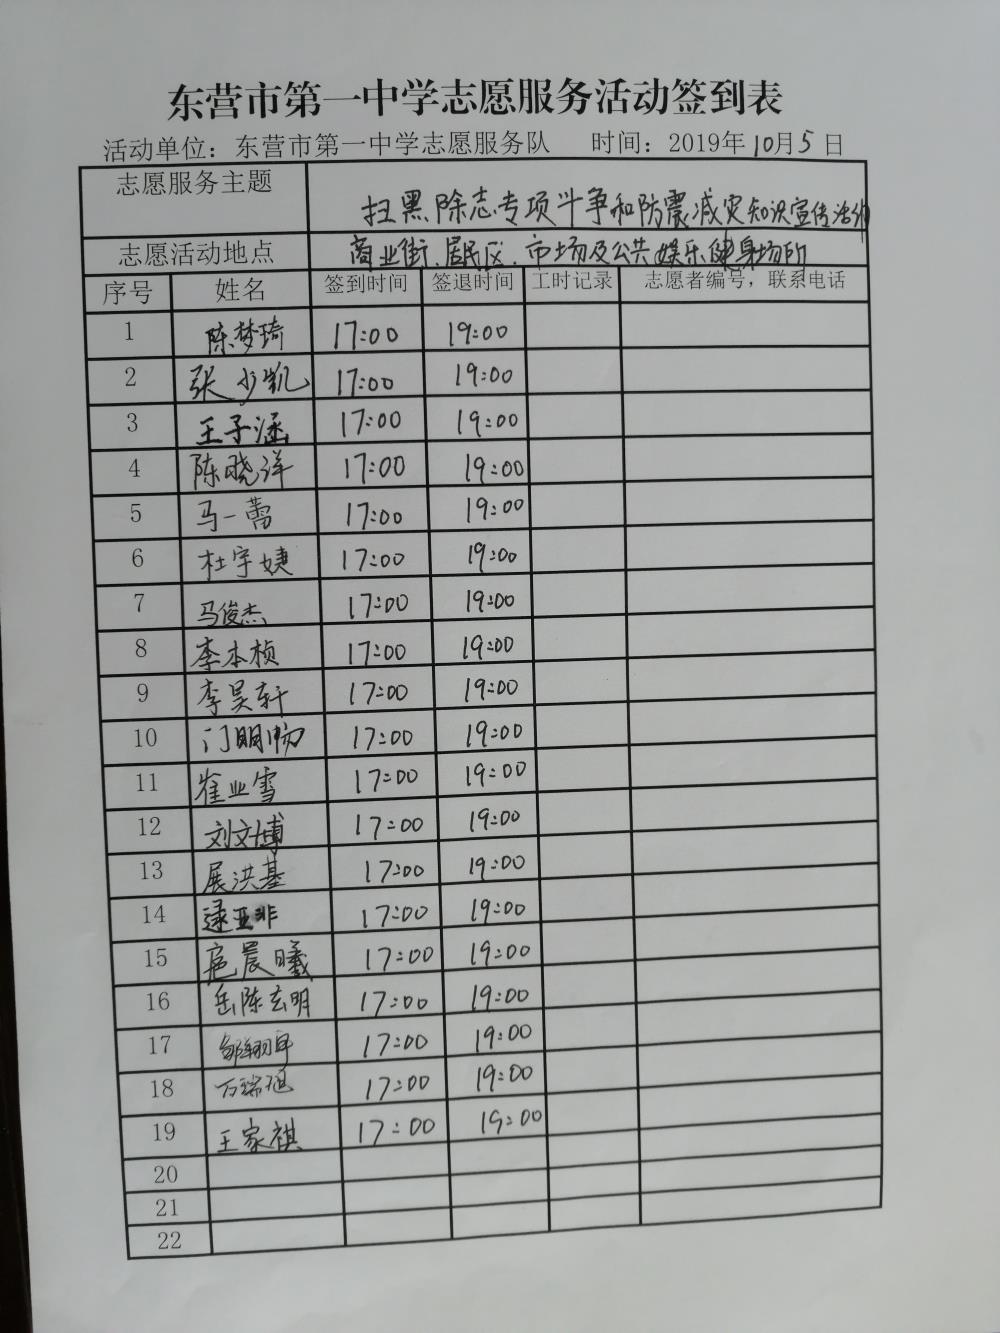 东营市第一中学志愿服务活动签到表
活动单位：东营市第一中学志愿服务队 时间：2019年10月5日
志愿服务主题 扫黑除志专项斗争和防震减灾知识宣传活动
志愿活动地点 商业街、居民区、市场及公共娱乐健身场所
序号 姓名 签到时间 签退时间 工时记录 志愿者编号，联系电话
1 陈梦琦 17:00 19:00
2 张少凯 17:00 19:00
3 王子涵 17:00 19:00
4 陈晓洋 17:00 19:00
5 马一蕾 17:00 19:00
6 杜宇婕 17:00 19:00
7 马俊杰 17:00 19:00
8 李本桢 17:00 19:00
9 李昊轩 17:00 19:00
10 门明畅 17:00 19:00
11 崔业雪 17:00 19:00
12 刘文博 17:00 19:00
13 展洪基 17:00 19:00
14 逯亚非 17:00 19:00
15 扈晨曦 17:00 19:00
16 岳陈玄明 17:00 19:00
17 17:00 19:00
18 万瑞旭 17:00 19:00
19 王家祺 17:00 19:00
20
21
22